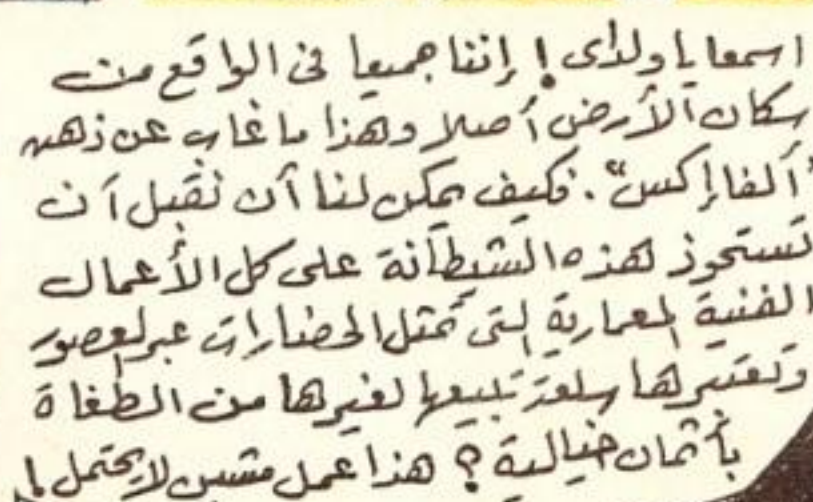 اسمعا يا ولداى ! إننا جميعا فى الواقع من
سكان الأرض أصلا وهذا ما غاب عن ذهن
"ألفا إكس". فكيف يمكن لنا أن نقبل أن
تستحوذ هذه الشيطانة على كل الأعمال
الفنية المعمارية التى تمثل الحضارات عبر العصور
وتعتبرها سلعة تبيعها لغيرها من الطغاة
بأثمان خيالية ؟ هذا عمل مشين لا يحتمل !